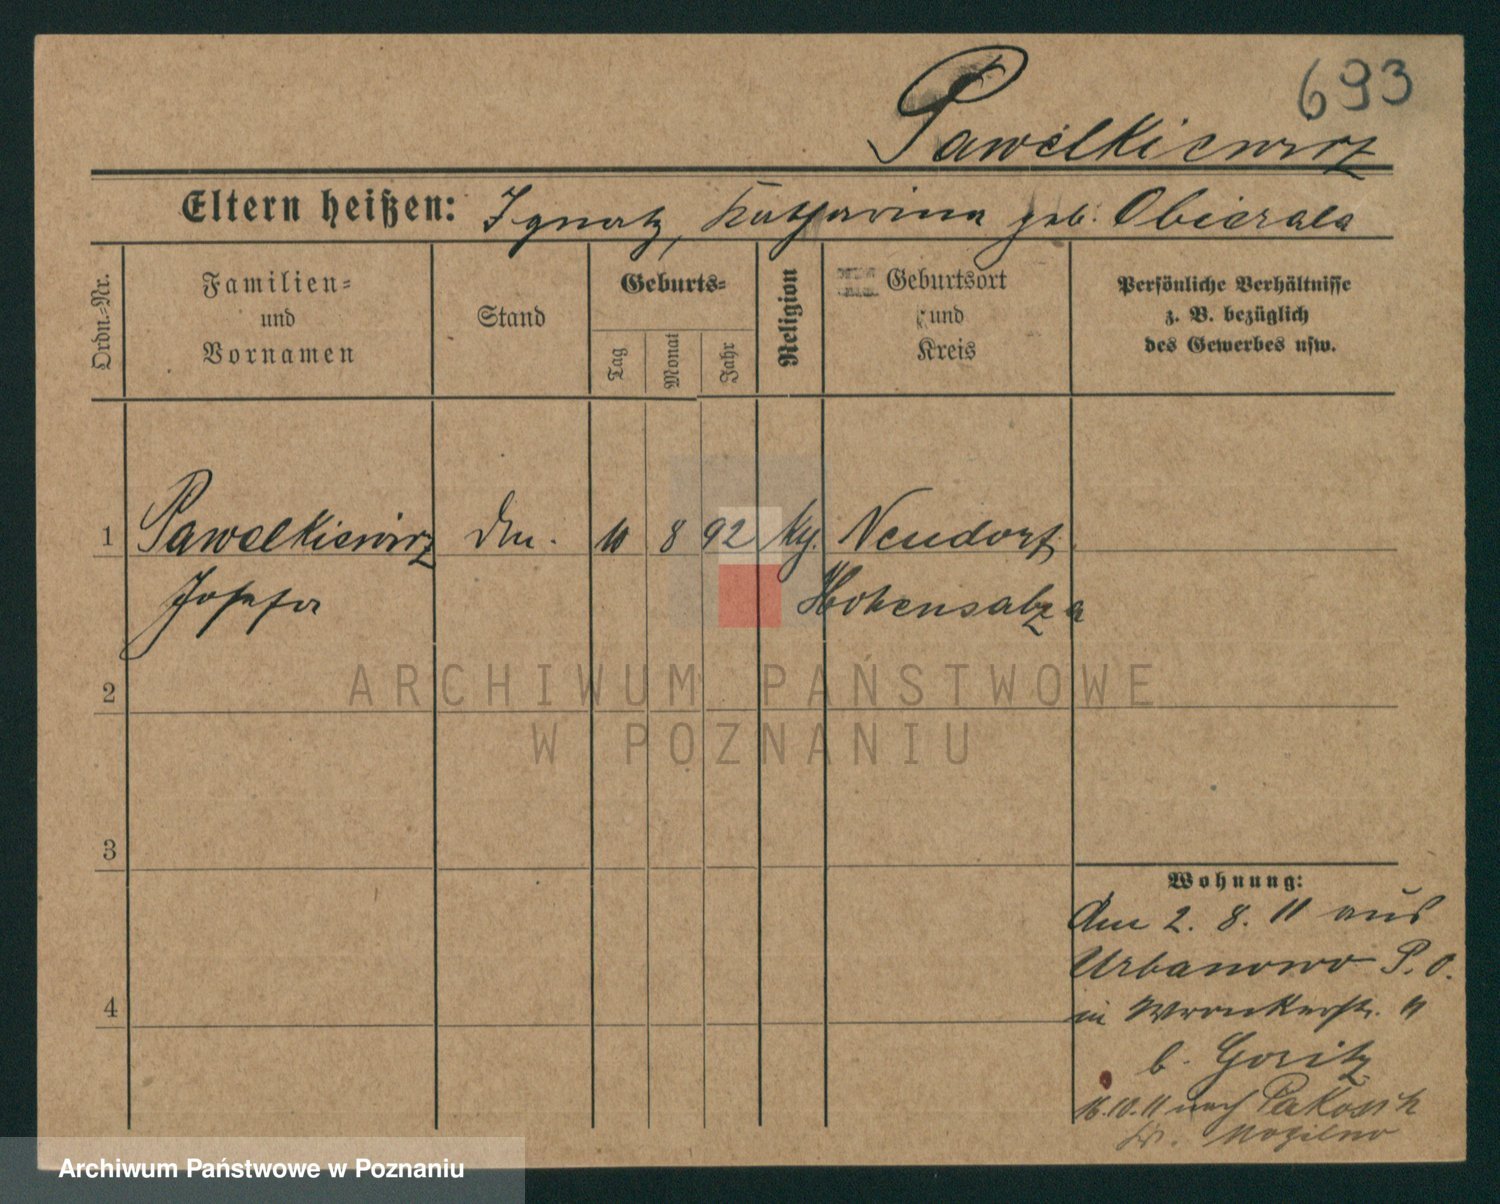 693
Pawelkiewicz
Eltern heißen: Ignatz, Katharina geb. Obierala
Ordn.-Nr.
Familien-
und
Vornamen
Stand
Geburts-
Tag
Monat
Jahr
Religion
Geburtsort
und
Kreis
Persönliche Verhältnisse
z. B. bezüglich
des Gewerbes usw.
1 Pawelkiewicz 8 92 Neudorf
Josefa Hohensalza
2
3
4
Wohnung:
Am 2. 8. 11 aus
Urbanowo P. O.
in Wronkerstr. 11
b. Goritz
16.10.11 nach Pakosch
Kr. Mogilno
ARCHIWUM PAŃSTWOWE
W POZNANIU
Archiwum Państwowe w Poznaniu